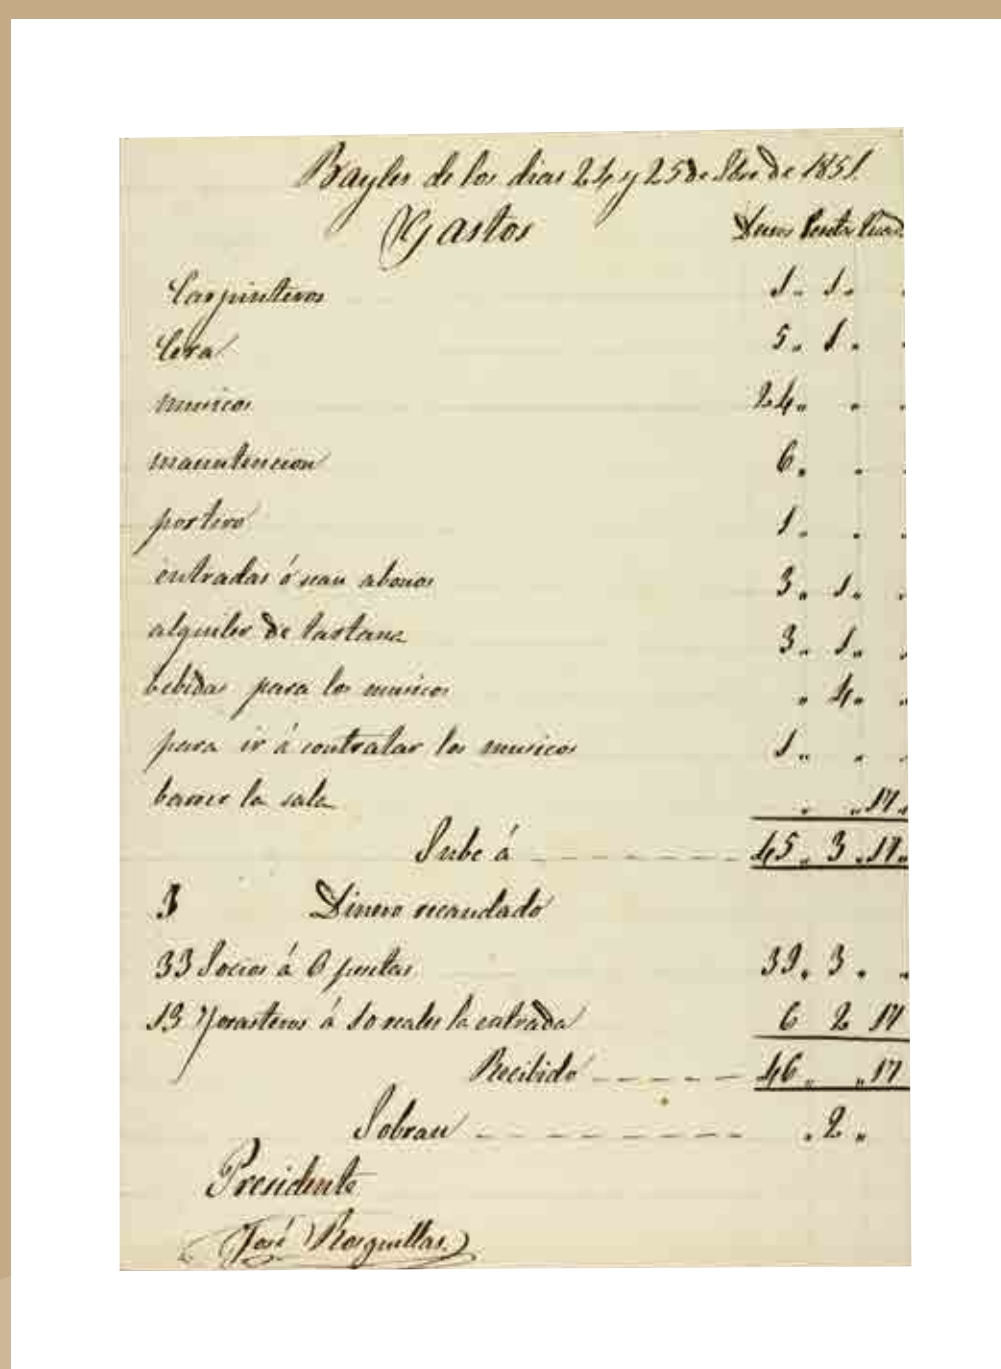 Bayles de los dias 24 y 25 de Sbre de 1851.
Gastos Duros Peseta
Carpinteros 1 „ 1 „ „
Cera 5 „ 1 „ „
musicos 24 „ „ „
manutencion 6 „ „ „
portero 1 „ „ „
entradas ó sean abonos 3 „ 1 „ „
alquiler de tartana 3 „ 1 „ „
bebidas para los musicos „ 4 „ „
para ir á contratar los musicos 1 „ „ „
barrer la sala „ „ 17 „
Sube á 45 „ 3 „ 17 „
Dinero recaudado
33 Socios á 6 pesetas 39 „ 3 „ „
13 Forasteros á 10 reales la entrada 6 2 17
Recibido 46 „ „ 17
Sobran „ 2 „
Presidente
José Rosquillas